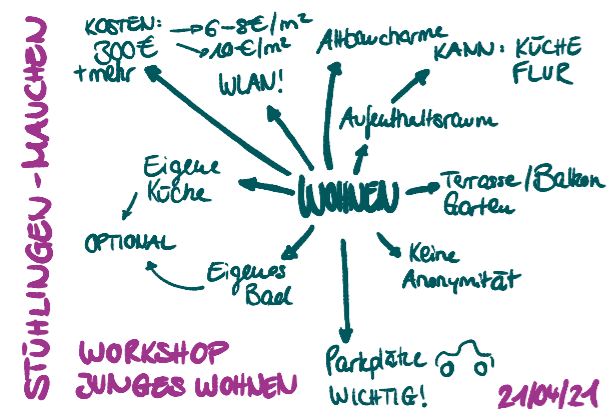 STÜHLINGEN - MAUCHEN
KOSTEN:
300€
+mehr
→ 6-8€/m²
→ 10€/m²
WLAN!
Altbaucharme
KANN: KÜCHE
FLUR
Aufenthaltsraum
Eigene
Küche
WOHNEN
Terrasse/Balkon
Garten
OPTIONAL
Eigenes
Bad
Keine
Anonymität
Parkplätze
WICHTIG!
WORKSHOP
JUNGES WOHNEN
21/04/21